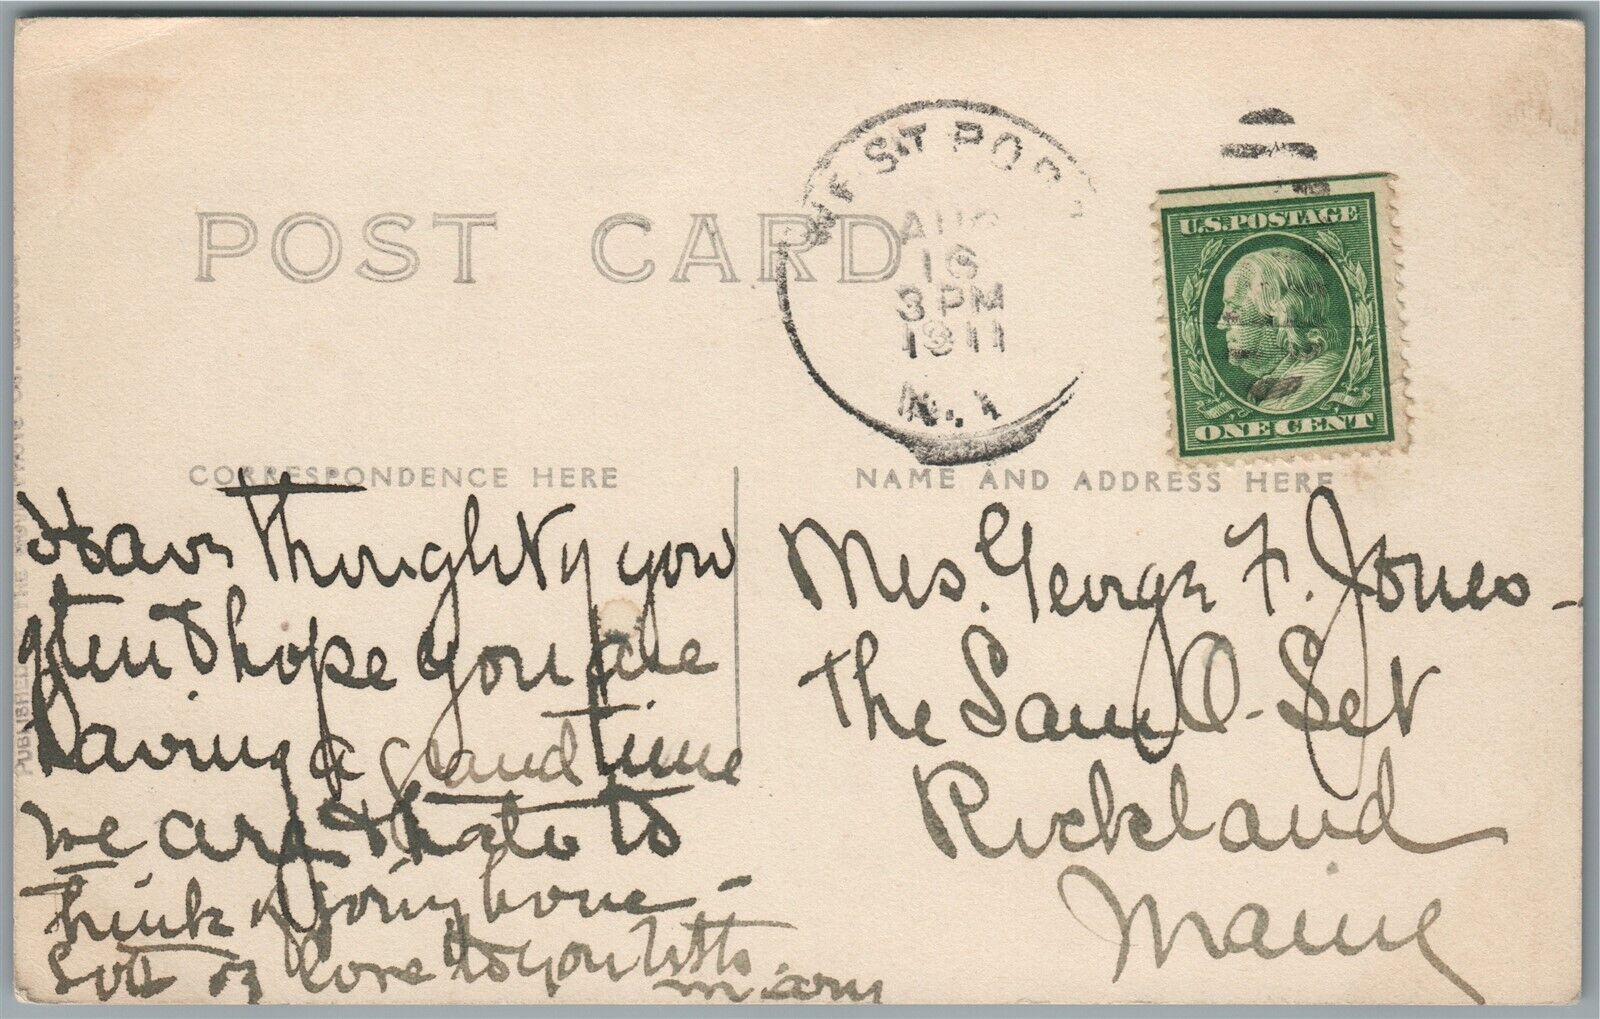 POST CARD
WEST POINT
AUG
16
3 PM
1911
N.Y.
U.S. POSTAGE
ONE CENT
CORRESPONDENCE HERE
NAME AND ADDRESS HERE
PUBLISHED
Have thought of you
often & hope you are
having a grand time
we are & hate to
think of going home -
love to you
Mary
Mrs. George F. Jones -
The Sam O-Set
Rockland
Maine